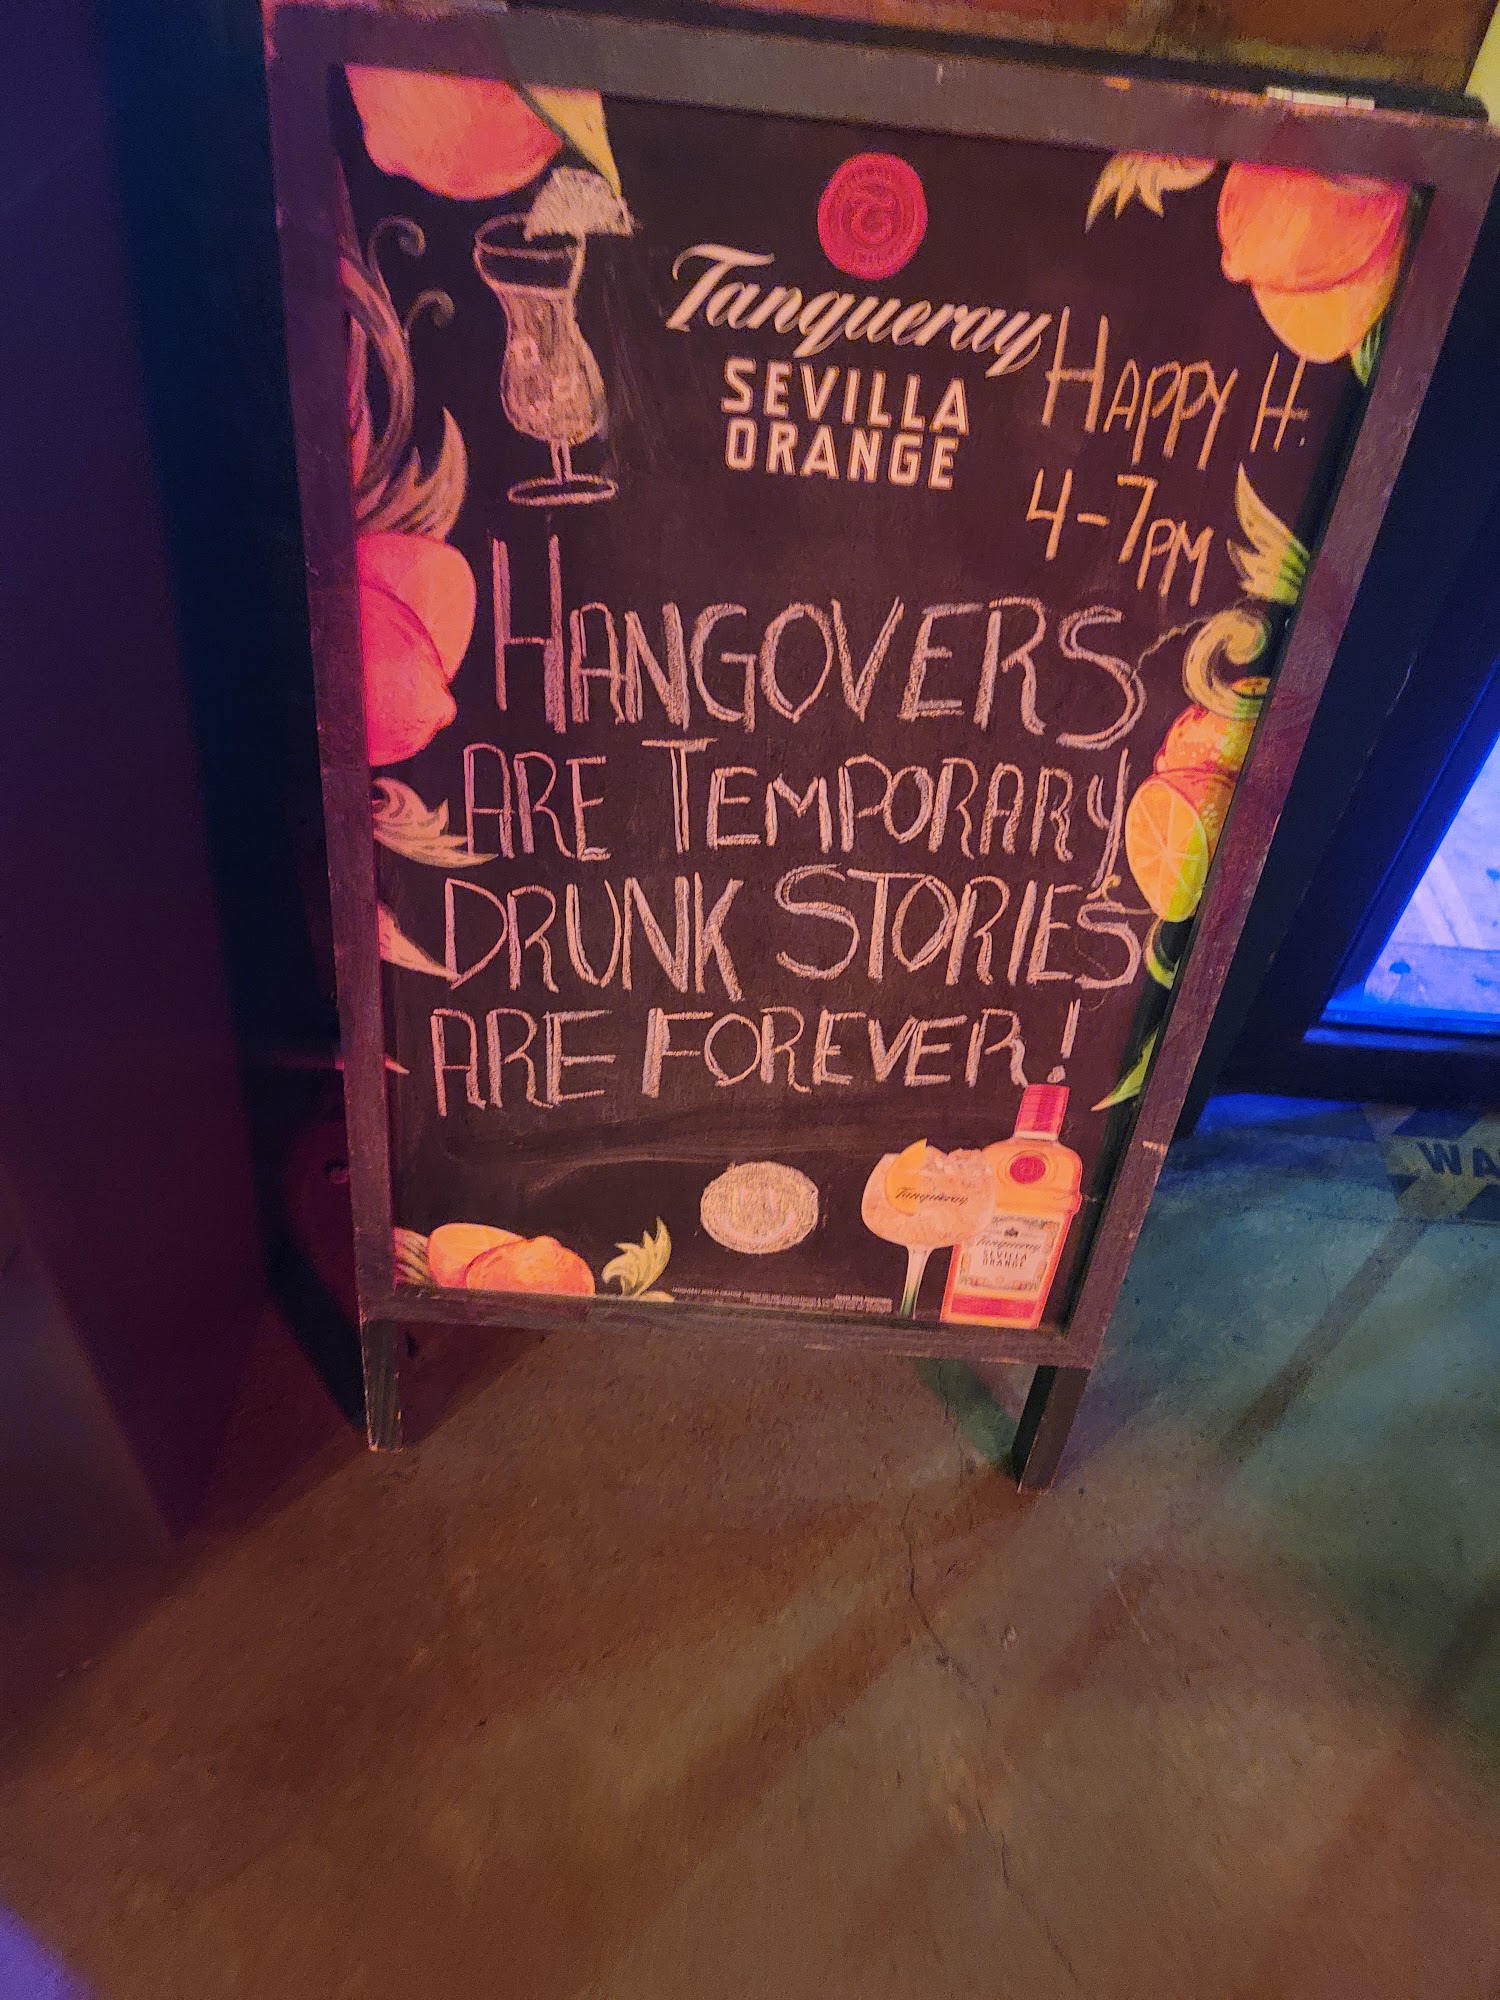 Tanqueray
SEVILLA
ORANGE
HAPPY H.
4-7PM
HANGOVERS
ARE TEMPORARY
DRUNK STORIES
ARE FOREVER!
Tanqueray
Tanqueray
SEVILLA
ORANGE
WA